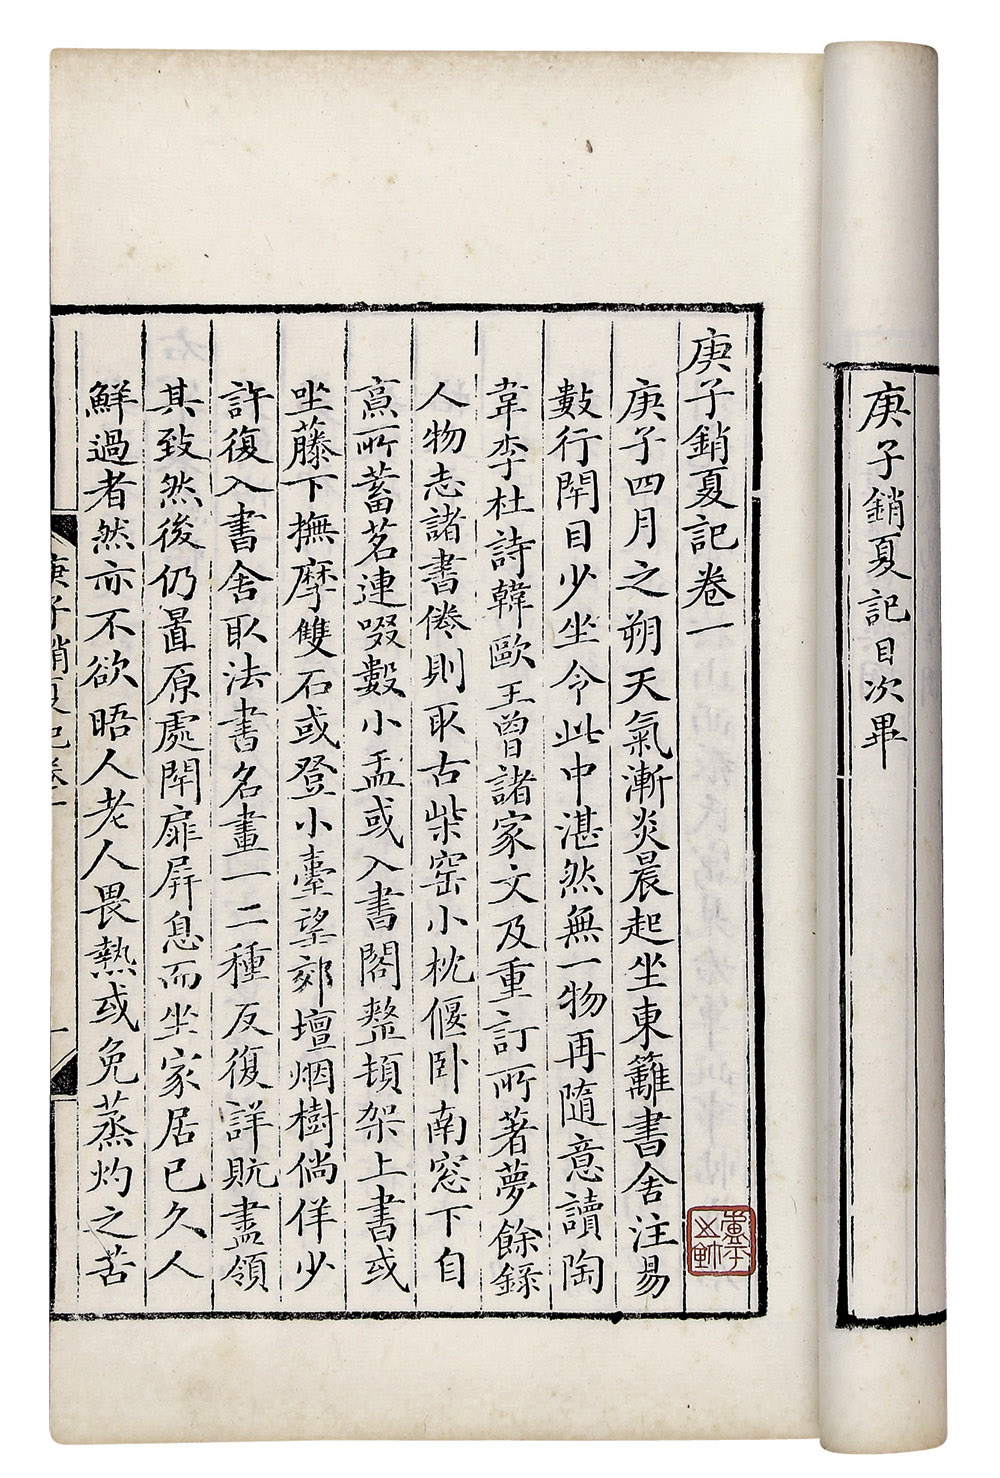 庚子銷夏記目次畢
庚子銷夏記卷一
庚子四月之朔天氣漸炎晨起坐東籬書舍注易
數行閉目少坐令此中湛然無一物再隨意讀陶
韋李杜詩韓歐王曾諸家文及重訂所著夢餘錄
人物志諸書倦則取古柴窑小枕偃卧南窓下自
烹所蓄茗連啜數小盂或入書閣整頓架上書或
坐藤下撫摩雙石或登小臺望郊壇烟樹倘佯少
許復入書舍取法書名畫一二種反復詳翫盡領
其致然後仍置原處閉扉屏息而坐家居已久人
鮮過者然亦不欲晤人老人畏熱或免蒸灼之苦
庚子銷夏記卷一
一